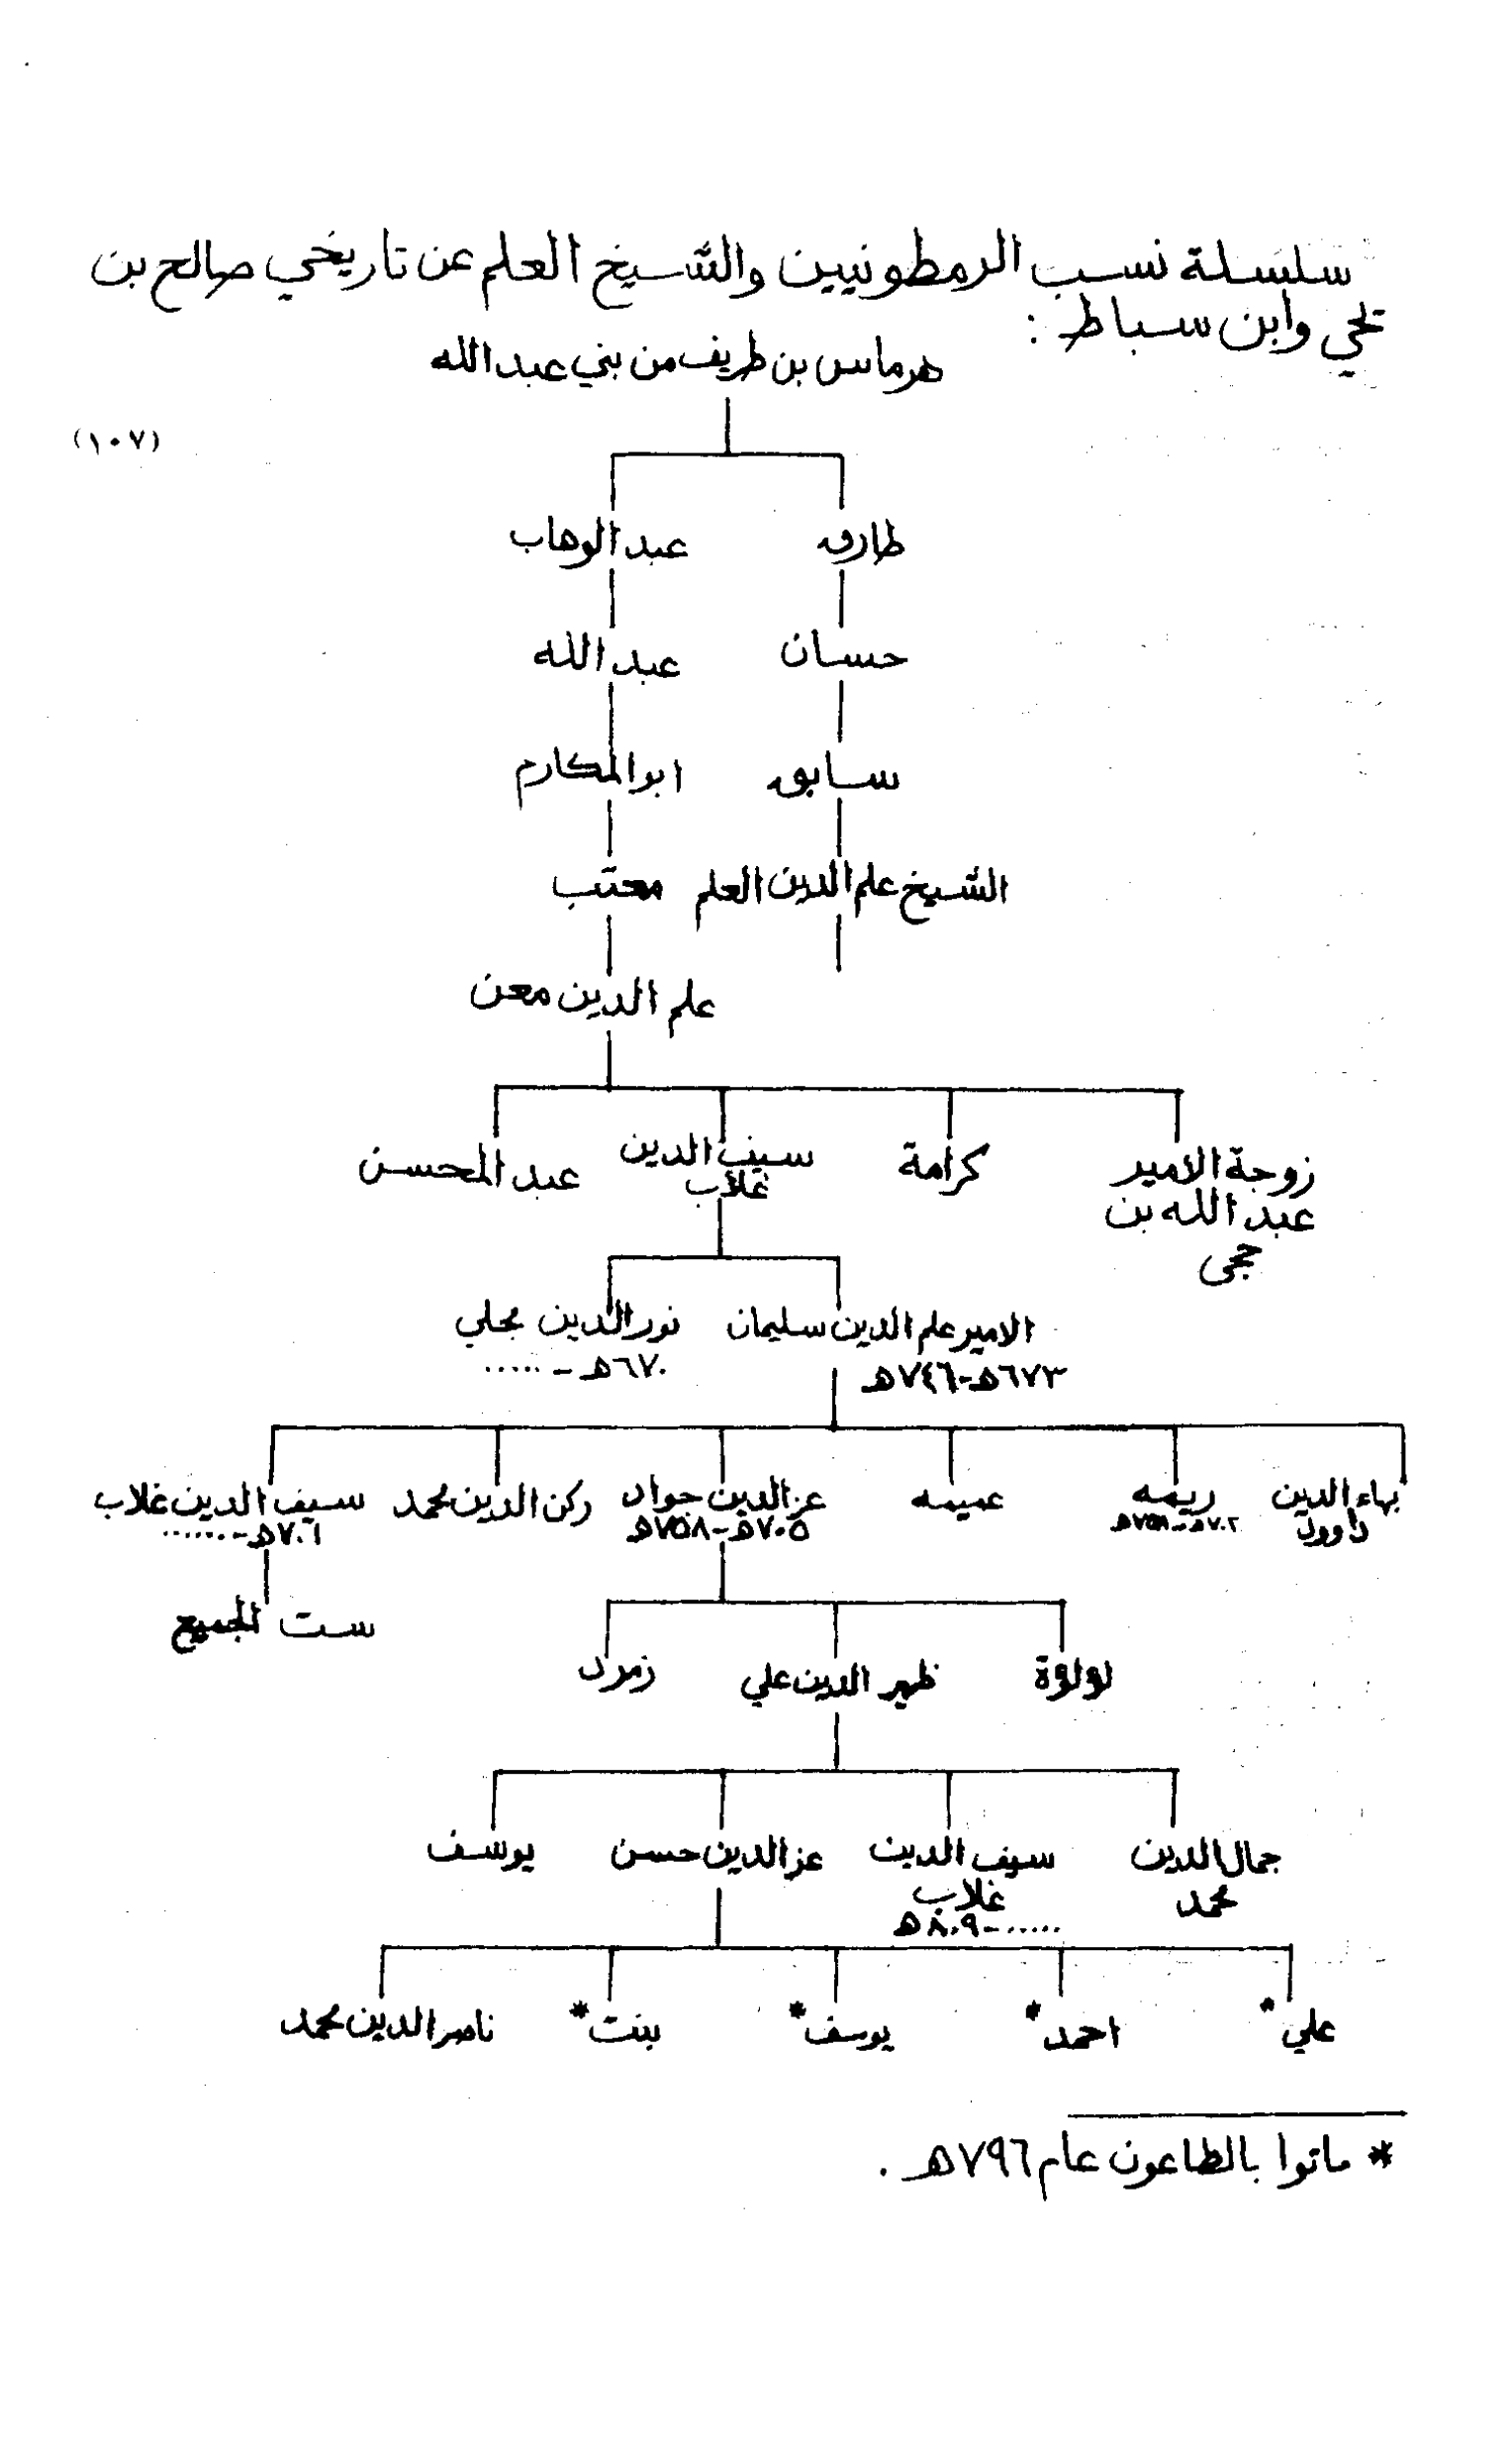 سلسلة نسب الرمطونيين والشيخ العلم عن تاريخي صالح بن
يحي وابن سباط :
هرماس بن طريف من بني عبدالله
(١٠٧)
طارق
عبد الوهاب
حسان
عبد الله
سابق
ابو المكارم
الشيخ علم الدين العلم
معتب
علم الدين معن
زوجة الامير
عبد الله بن
حجى
كرامة
سيف الدين
غلاب
عبد المحسن
الامير علم الدين سليمان
٦٧٣هـ-٧٤٦هـ
نور الدين مجلي
٦٧٠هـ - .....
بهاء الدين
داوود
ريمه
٧٠٢هـ-٧٥٨هـ
عميمه
عز الدين جواد
٧٠٥هـ-٧٥٨هـ
ركن الدين محمد
سيف الدين غلاب
٧٠١هـ-......
ست الجميع
لولوة
ظهير الدين علي
زمرد
جمال الدين
محمد
سيف الدين
غلاب
.....-٨٠٩هـ
عز الدين حسن
يوسف
علي *
احمد *
يوسف *
بنت *
ناصر الدين محمد
* ماتوا بالطاعون عام ٧٩٦هـ .